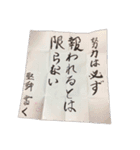 努力は必ず
報われるとは
限らない